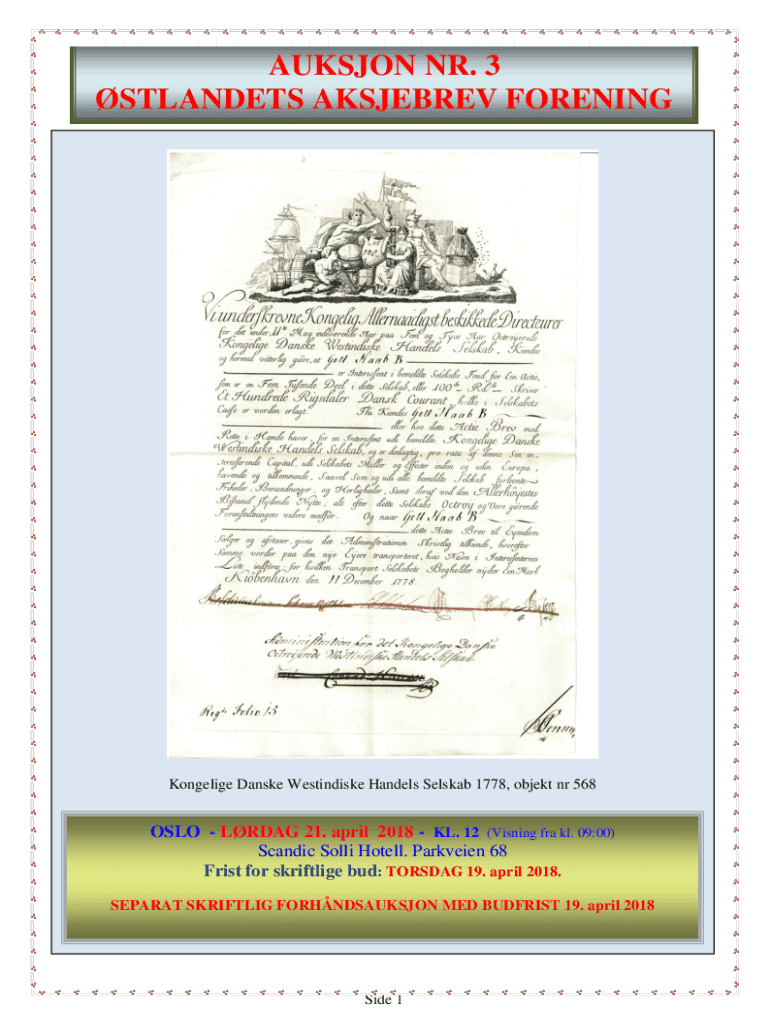 AUKSJON NR. 3
ØSTLANDETS AKSJEBREV FORENING
Vi underskrevne Kongelig Allernaadigst beskikkede Directeurer
for det under 11te May indeværende Aar paa Fem og Tyve Aar Octroyerede
Kongelige Danske Westindiske Handels Selskab, Kiendes
og hermed vitterlig giøre, at Gott Haab B
er Interessent i bemeldte Selskabs Fond for Een Actie,
som er en Fem Tusende Deel i dette Selskab, eller 100de Rdlr Skriver
Et Hundrede Rigsdaler Dansk Courant, hvilke i Selskabets
Casse er vorden erlagt. Thi Kiendes Gott Haab B
eller hvo dette Actie Brev med
Rette i Hænde haver, for en Interessent udi bemeldte Kongelige Danske
Westindiske Handels Selskab, og er deelagtig, pro rata af denne
Capital, udi Selskabets Midler og Effecter inden og uden Europa,
havende og tilkommende, Saavel Som og udi alle bemeldte Selskab forleente
Friheder, Benaadninger, og Herligheder, Samt deraf ved den Allerhøyestes
Bistand flydende Nytte; alt efter dette Selskabs Octroy og
videre medfør. Og naar Gott Haab B
dette Actie Brev til Eyendom
Sælger og afstaaer, gives det Administrationen Skriftlig tilkiende, hvorefter
Samme vorder paa den nye Eyere transporteret, hvis Navn i Interessenternes
Liste indføres, for hvilken Transport Selskabets Bogholder nyder Een Mark
Kiøbenhavn den 11 December 1778.
Administration for det Kongelige Danske
Octroijerede Westindiske Handels Selskab.
Regt: Folio 15
Kongelige Danske Westindiske Handels Selskab 1778, objekt nr 568
OSLO - LØRDAG 21. april 2018 - KL. 12 (Visning fra kl. 09:00)
Scandic Solli Hotell. Parkveien 68
Frist for skriftlige bud: TORSDAG 19. april 2018.
SEPARAT SKRIFTLIG FORHÅNDSAUKSJON MED BUDFRIST 19. april 2018
Side 1